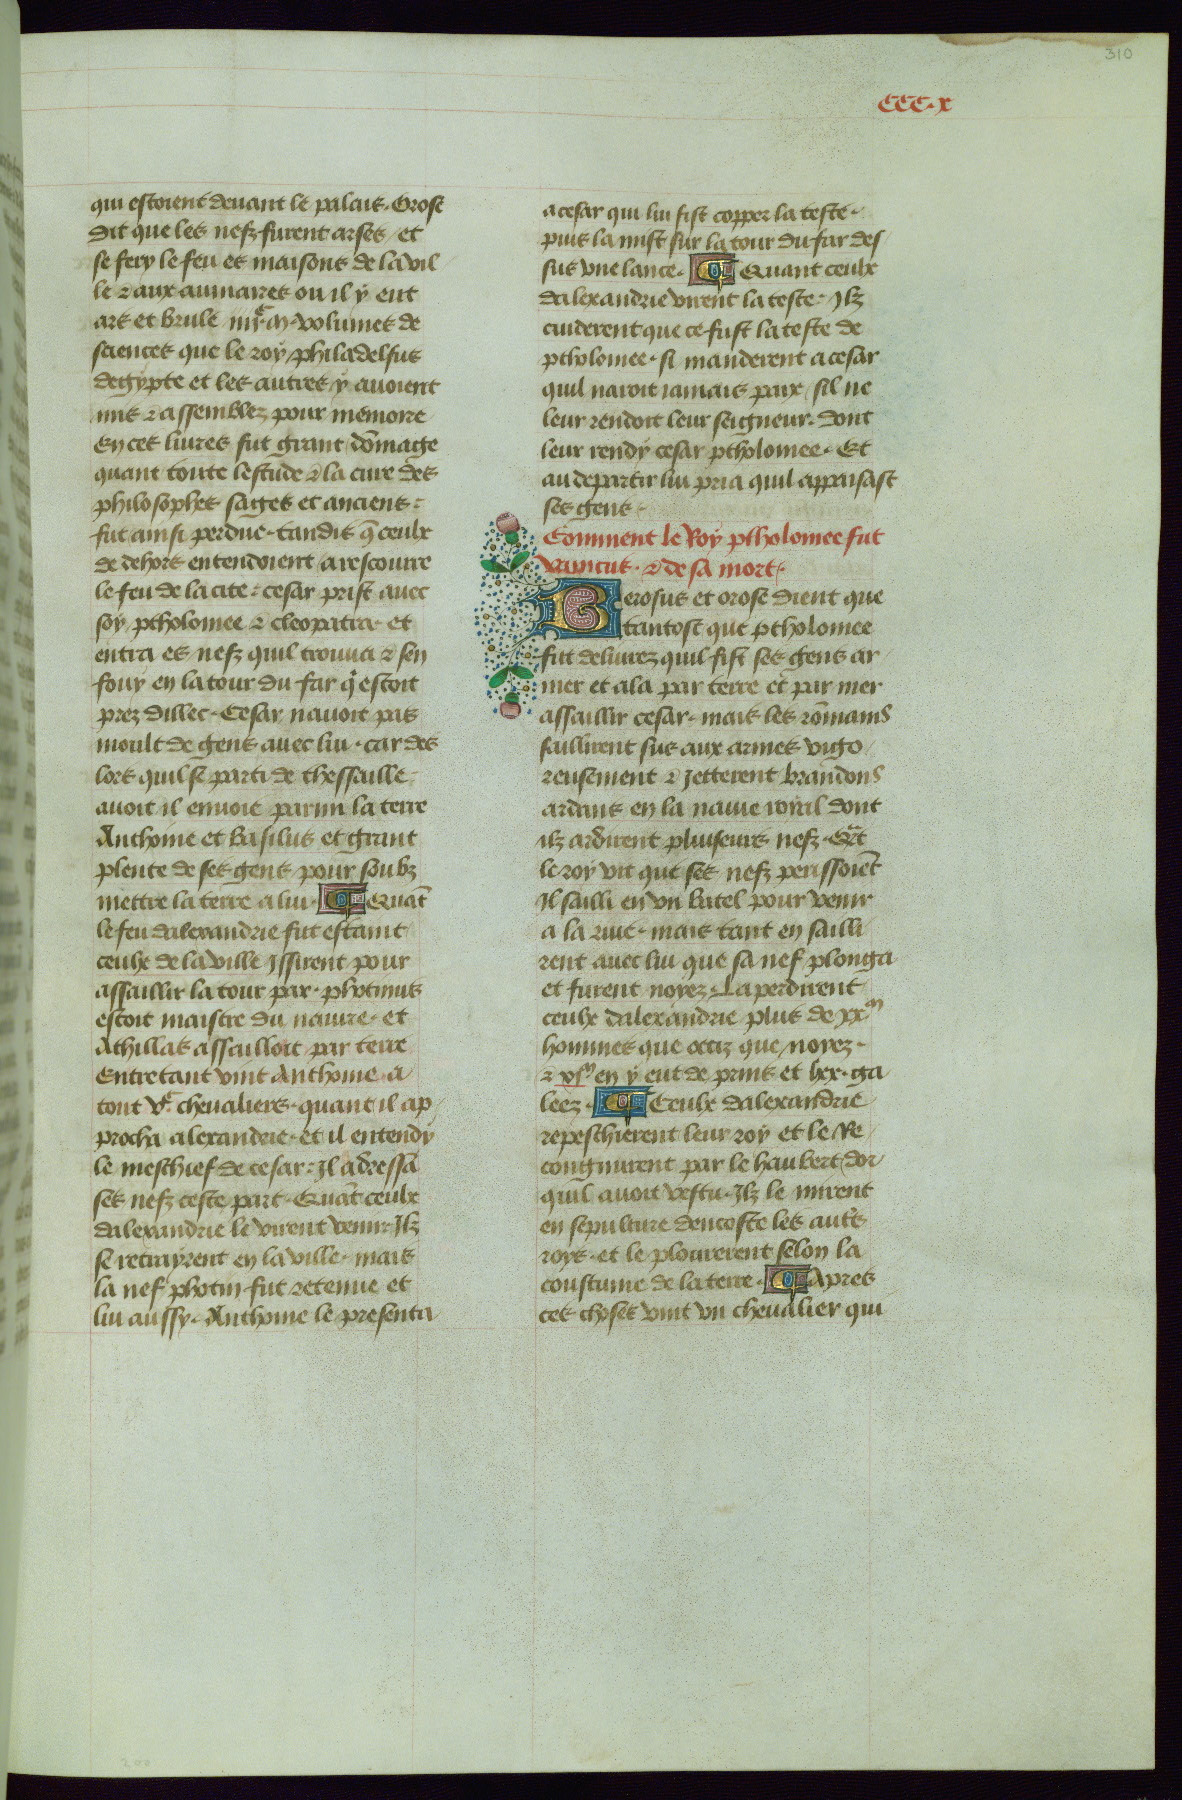 310
CCC.x
qui estoient deuant le palais. Orose
dit que les nefz furent arses / et
se fery le feu es maisons de la vil
le & aux aumaires ou il y ent
ars et brule iiijc.m. volumes de
sciences que le roy philadelfus
degypte et les autres y auoient
mis & assemblez pour memoire
En ces liures fut grant dōmage
quant toute lestude & la cure des
philosophes sages et anciens:
fut ainsi perdue. tandis q̄ ceulx
de dehors entendoient a rescourre
le feu de la cite: cesar prist auec
soy ptholomee & cleopatra. et
entra es nefz quil trouua & sen
fouy en la tour du far q̄ estoit
prez dillec. Cesar nauoit pas
moult de gens auec lui. car des
lors quil se parti de thessaille
auoit il enuoie parmi la terre
Anthoine et basilus et grant
plente de ses gens pour soubz
mettre la terre a lui. Quāt
le feu dalexandrie fut estaint
ceulx de la ville Issirent pour
assaillir la tour par. photinus
estoit maistre du nauire. et
Athillas assailloit par terre
Entretant vint Anthoine a
tout vc chevaliers. quant il ap
procha alexandrie. et il entendy
le meschief de cesar: Il adressa
ses nefz ceste part. Quāt ceulx
dalexandrie le virent venir. Ilz
se retrayrent en la ville. mais
la nef photin fut retenue et
lui aussy. Anthoine le presenta
a cesar qui lui fist copper la teste.
puis la mist sur la tour du far des
sus vne lance. Quant ceulx
dalexandrie virent la teste: Ilz
cuiderent que ce fust la teste de
ptholomee. si manderent a cesar
quil naroit iamais paix / sil ne
leur rendoit leur seigneur. dont
leur rendy cesar ptholomee. Et
au departir lui pria quil appaisast
ses gens.
Comment le Roy ptholomee fut
vaincus. & de sa mort.
Berosus et orose dient que
tantost que ptholomee
fut deliurez quil fist ses gens ar
mer et ala par terre et par mer
assaillir cesar. mais les rōmains
saillirent sus aux armes vigo
reusement & Jetterent brandons
ardans en la nauie roial dont
ilz ardirent pluiseurs nefz. Qāt
le roy vit que ses nefz perissoiēt
Il sailli en vn batel pour venir
a la riue. mais tant en sailli
rent auec lui que sa nef plonga
et furent noyez. La perdirent
ceulx dalexandrie plus de xxm
hommes que occiz que noyez.
& en y eut de prins et lxx. ga
lees. Ceulx dalexandrie
repeschierent leur roy et le Re
congnurent par le haubert dor
quil auoit vestu. Ilz le mirent
en sepulture dencoste les autr̄s
roys. et le plourerent selon la
coustume de la terre. Apres
ces choses vint vn cheualier qui